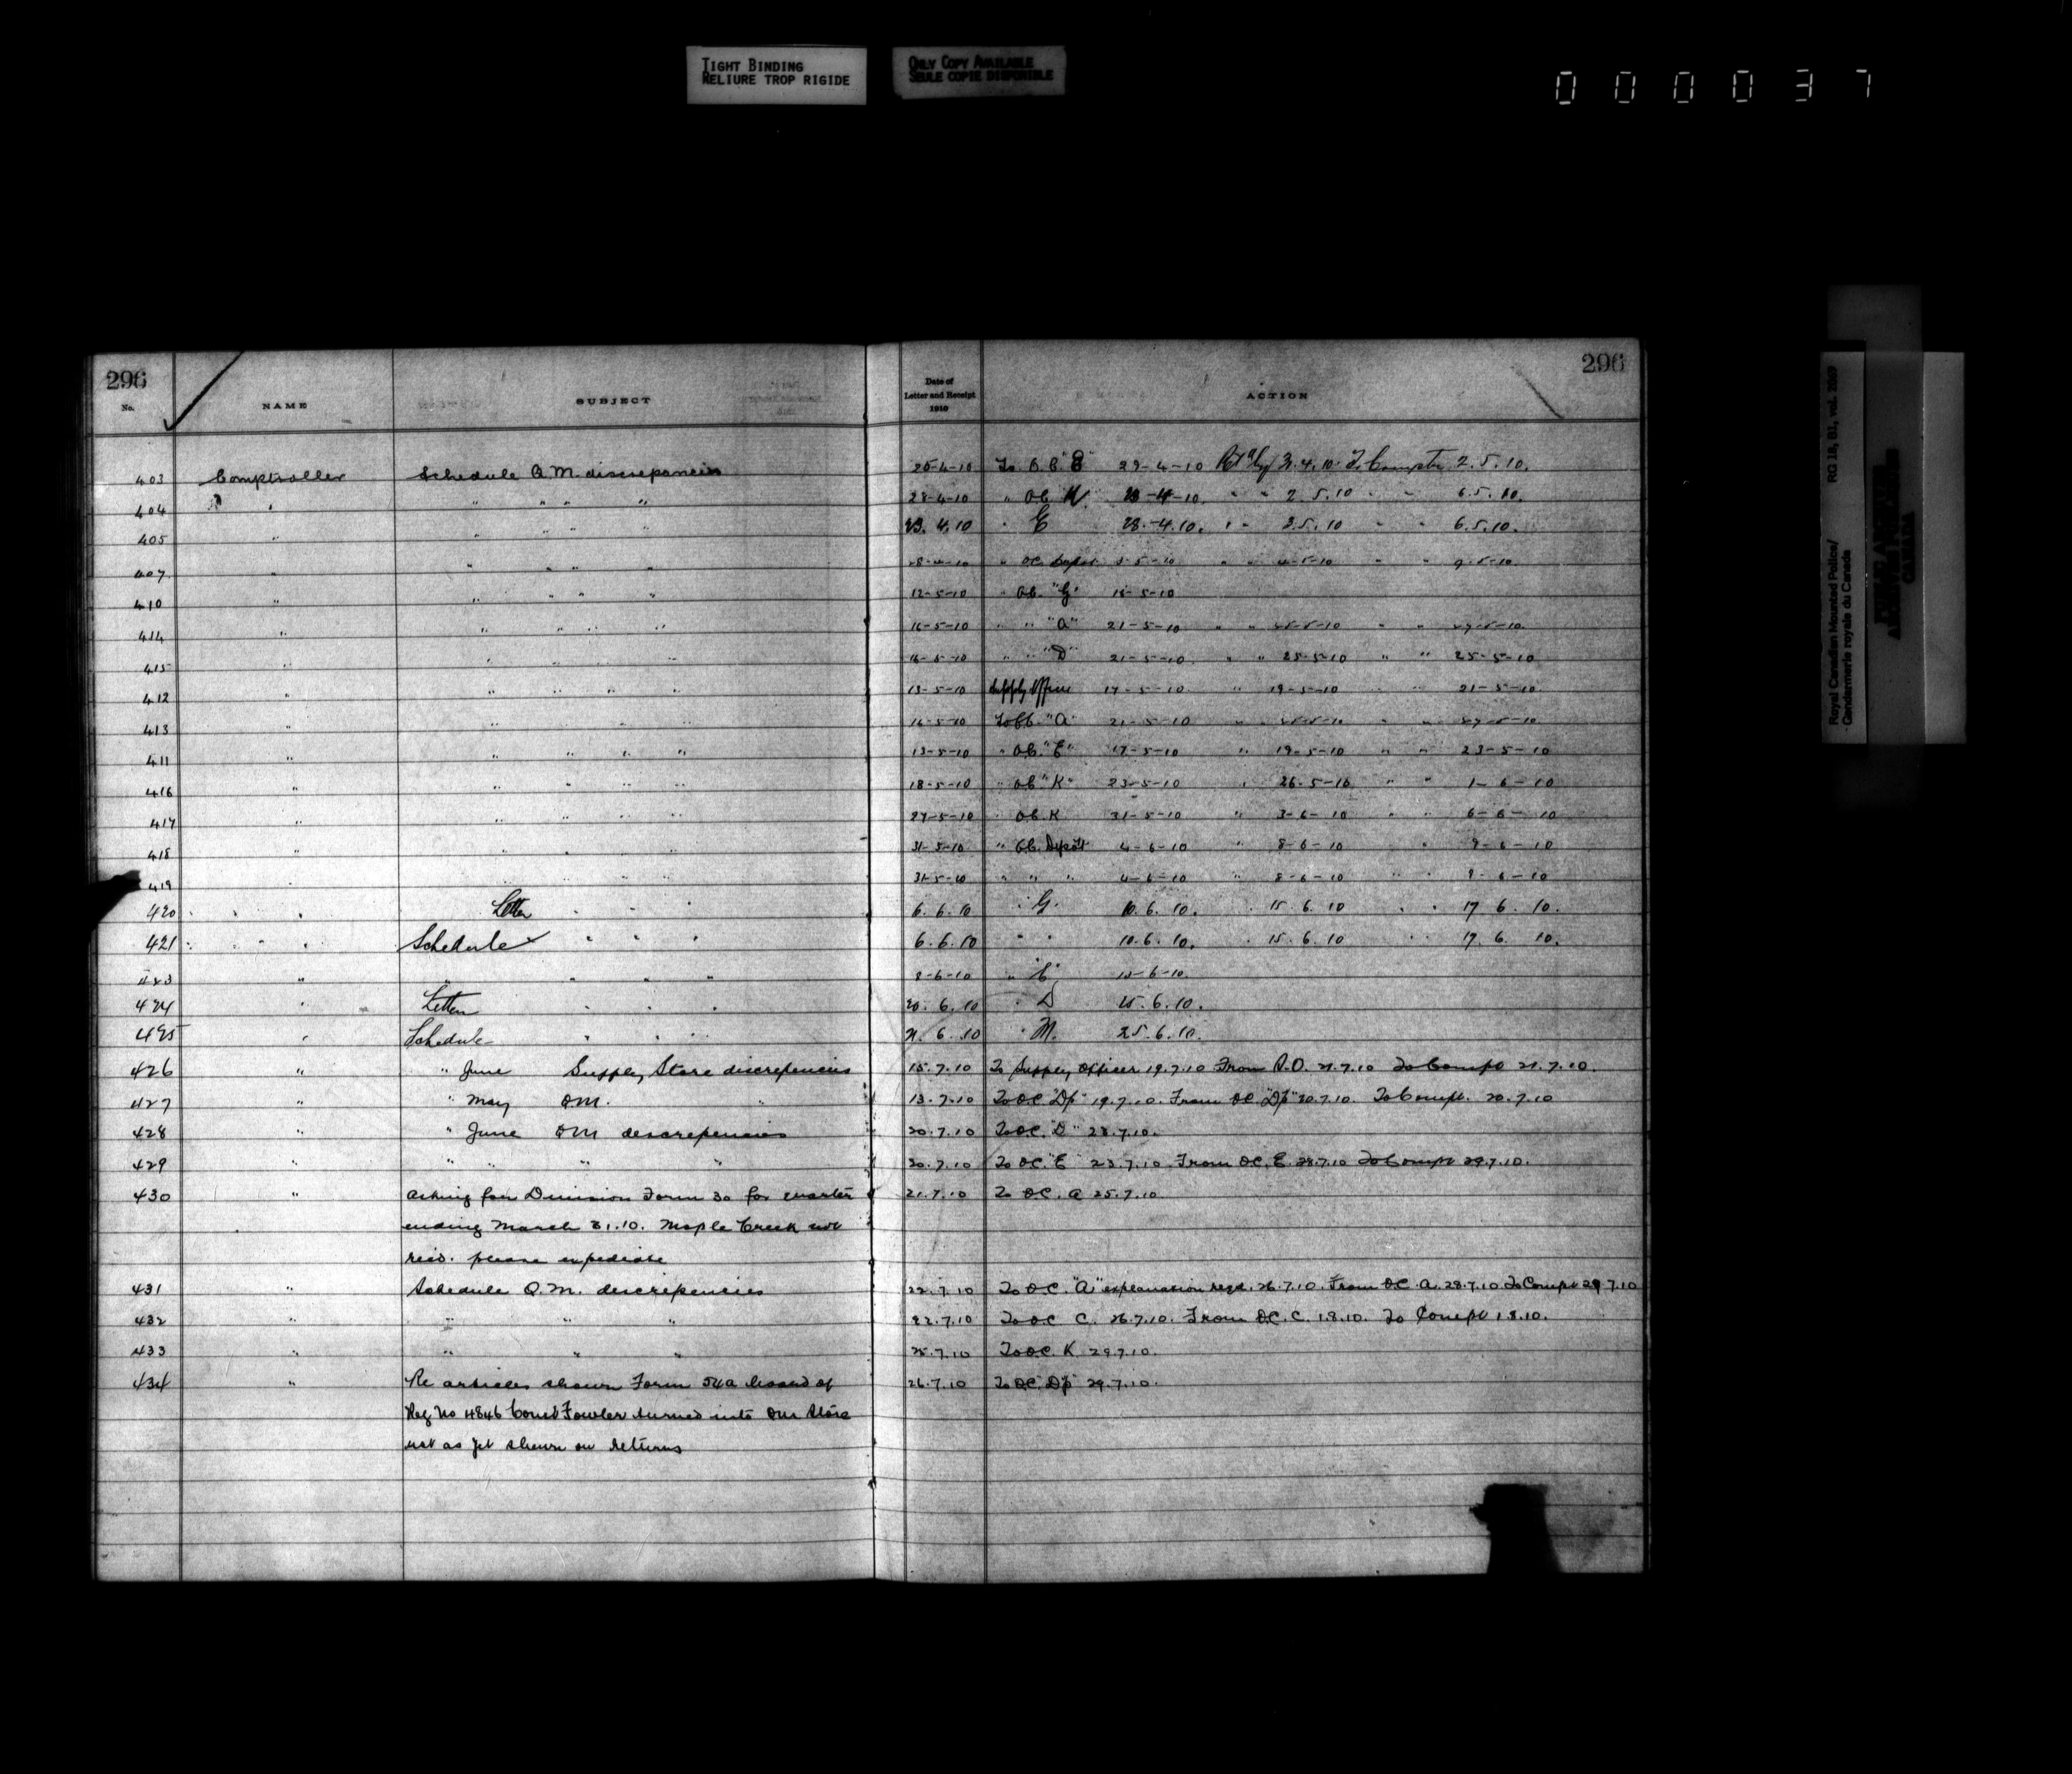 TIGHT BINDING
RELIURE TROP RIGIDE
ONLY COPY AVAILABLE
SEULE COPIE DISPONIBLE
000037
296 296
No. NAME SUBJECT Date of Letter and Receipt 1910 ACTION
403 Comptroller Schedule Q.M. discrepancies 25-4-10 To O.C. 29-4-10 To Comptr 2.5.10.
404 " " " " " 28-4-10 " O.C. K 28-4-10. " " 2.5.10 " " 6.5.10.
405 " " " " " 23.4.10 " E 28.-4.10. " " 2.5.10 " " 6.5.10.
407 " " " " " 28-4-10 " O.C. Depot 3-5-10 " " 4-5-10 " " 9-5-10.
410 " " " " " 12-5-10 " O.C. "G" 18-5-10
414 " " " " " 16-5-10 " " "A" 21-5-10 " " 25-5-10 " " 27-5-10.
415 " " " " 16-5-10 " " "D" 21-5-10. " " 25-5-10 " " 25-5-10
412 " " " " " 13-5-10 Supply Officer 17-5-10. " 19-5-10 " " 21-5-10.
413 " " " " " 16-5-10 To O.C. "A" 21-5-10 " 25-5-10 " " 27-5-10
411 " " " " " 13-5-10 " O.C. "E" 17-5-10 " 19-5-10 " " 23-5-10
416 " " " " " 18-5-10 " O.C. "K" 23-5-10 " 26-5-10 " " 1-6-10
417 " " " " " 27-5-10 " O.C. K 31-5-10 " 3-6-10 " " 6-6-10
418 " " " " " 31-5-10 " O.C. Depôt 4-6-10 " 8-6-10 " 9-6-10
419 " " " " " 31-5-10 " " " 4-6-10 " 8-6-10 " " 9-6-10
420 " " " Letter " " " 6.6.10 " G. 10.6.10. " 15.6.10 " " 17 6. 10.
421 " " " Schedule " " " 6.6.10 " " 10.6.10. " 15.6.10 " " 17. 6. 10.
423 " " " " " 8-6-10 " "E" 13-6-10.
424 " Letter " " " 20.6.10 " D 25.6.10.
425 " Schedule " " " 21.6.10 " M. 25.6.10.
426 " " June Supply Store discrepencies 15.7.10 To Supply Officer 19.7.10 From S.O. 21.7.10 To Compt 21.7.10.
427 " " May QM. " 13.7.10 To O.C. "Dp" 19.7.10. From O.C. "Dp" 20.7.10. To Compt. 20.7.10
428 " " June QM descrepencies 20.7.10 To O.C. "D" 23.7.10.
429 " " " " " 20.7.10 To O.C. "E" 23.7.10 From O.C. E. 28.7.10 To Compt 29.7.10.
430 " Asking for Division Form 30 for quarter 21.7.10 To O.C. A 25.7.10
ending March 31.10. Maple Creek not
recd. please expediate
431 " Schedule Q.M. descrepencies 22.7.10 To O.C. "A" explanation reqd. 26.7.10. From O.C. A. 28.7.10 To Compt 29.7.10
432 " " " " 22.7.10 To O.C. C. 26.7.10. From O.C. C. 1.8.10. To Compt 1.8.10.
433 " " " " 25.7.10 To O.C. K 29.7.10.
434 " Re articles shown Form 54a Board of 26.7.10 To O.C. "Dp" 29.7.10.
Reg No 4846 Const Fowler turned into QM Store
not as yet shewn on returns
Royal Canadian Mounted Police/ RG 18, B1, vol. 2069
Gendarmerie royale du Canada
PUBLIC ARCHIVES
ARCHIVES PUBLIQUES
CANADA